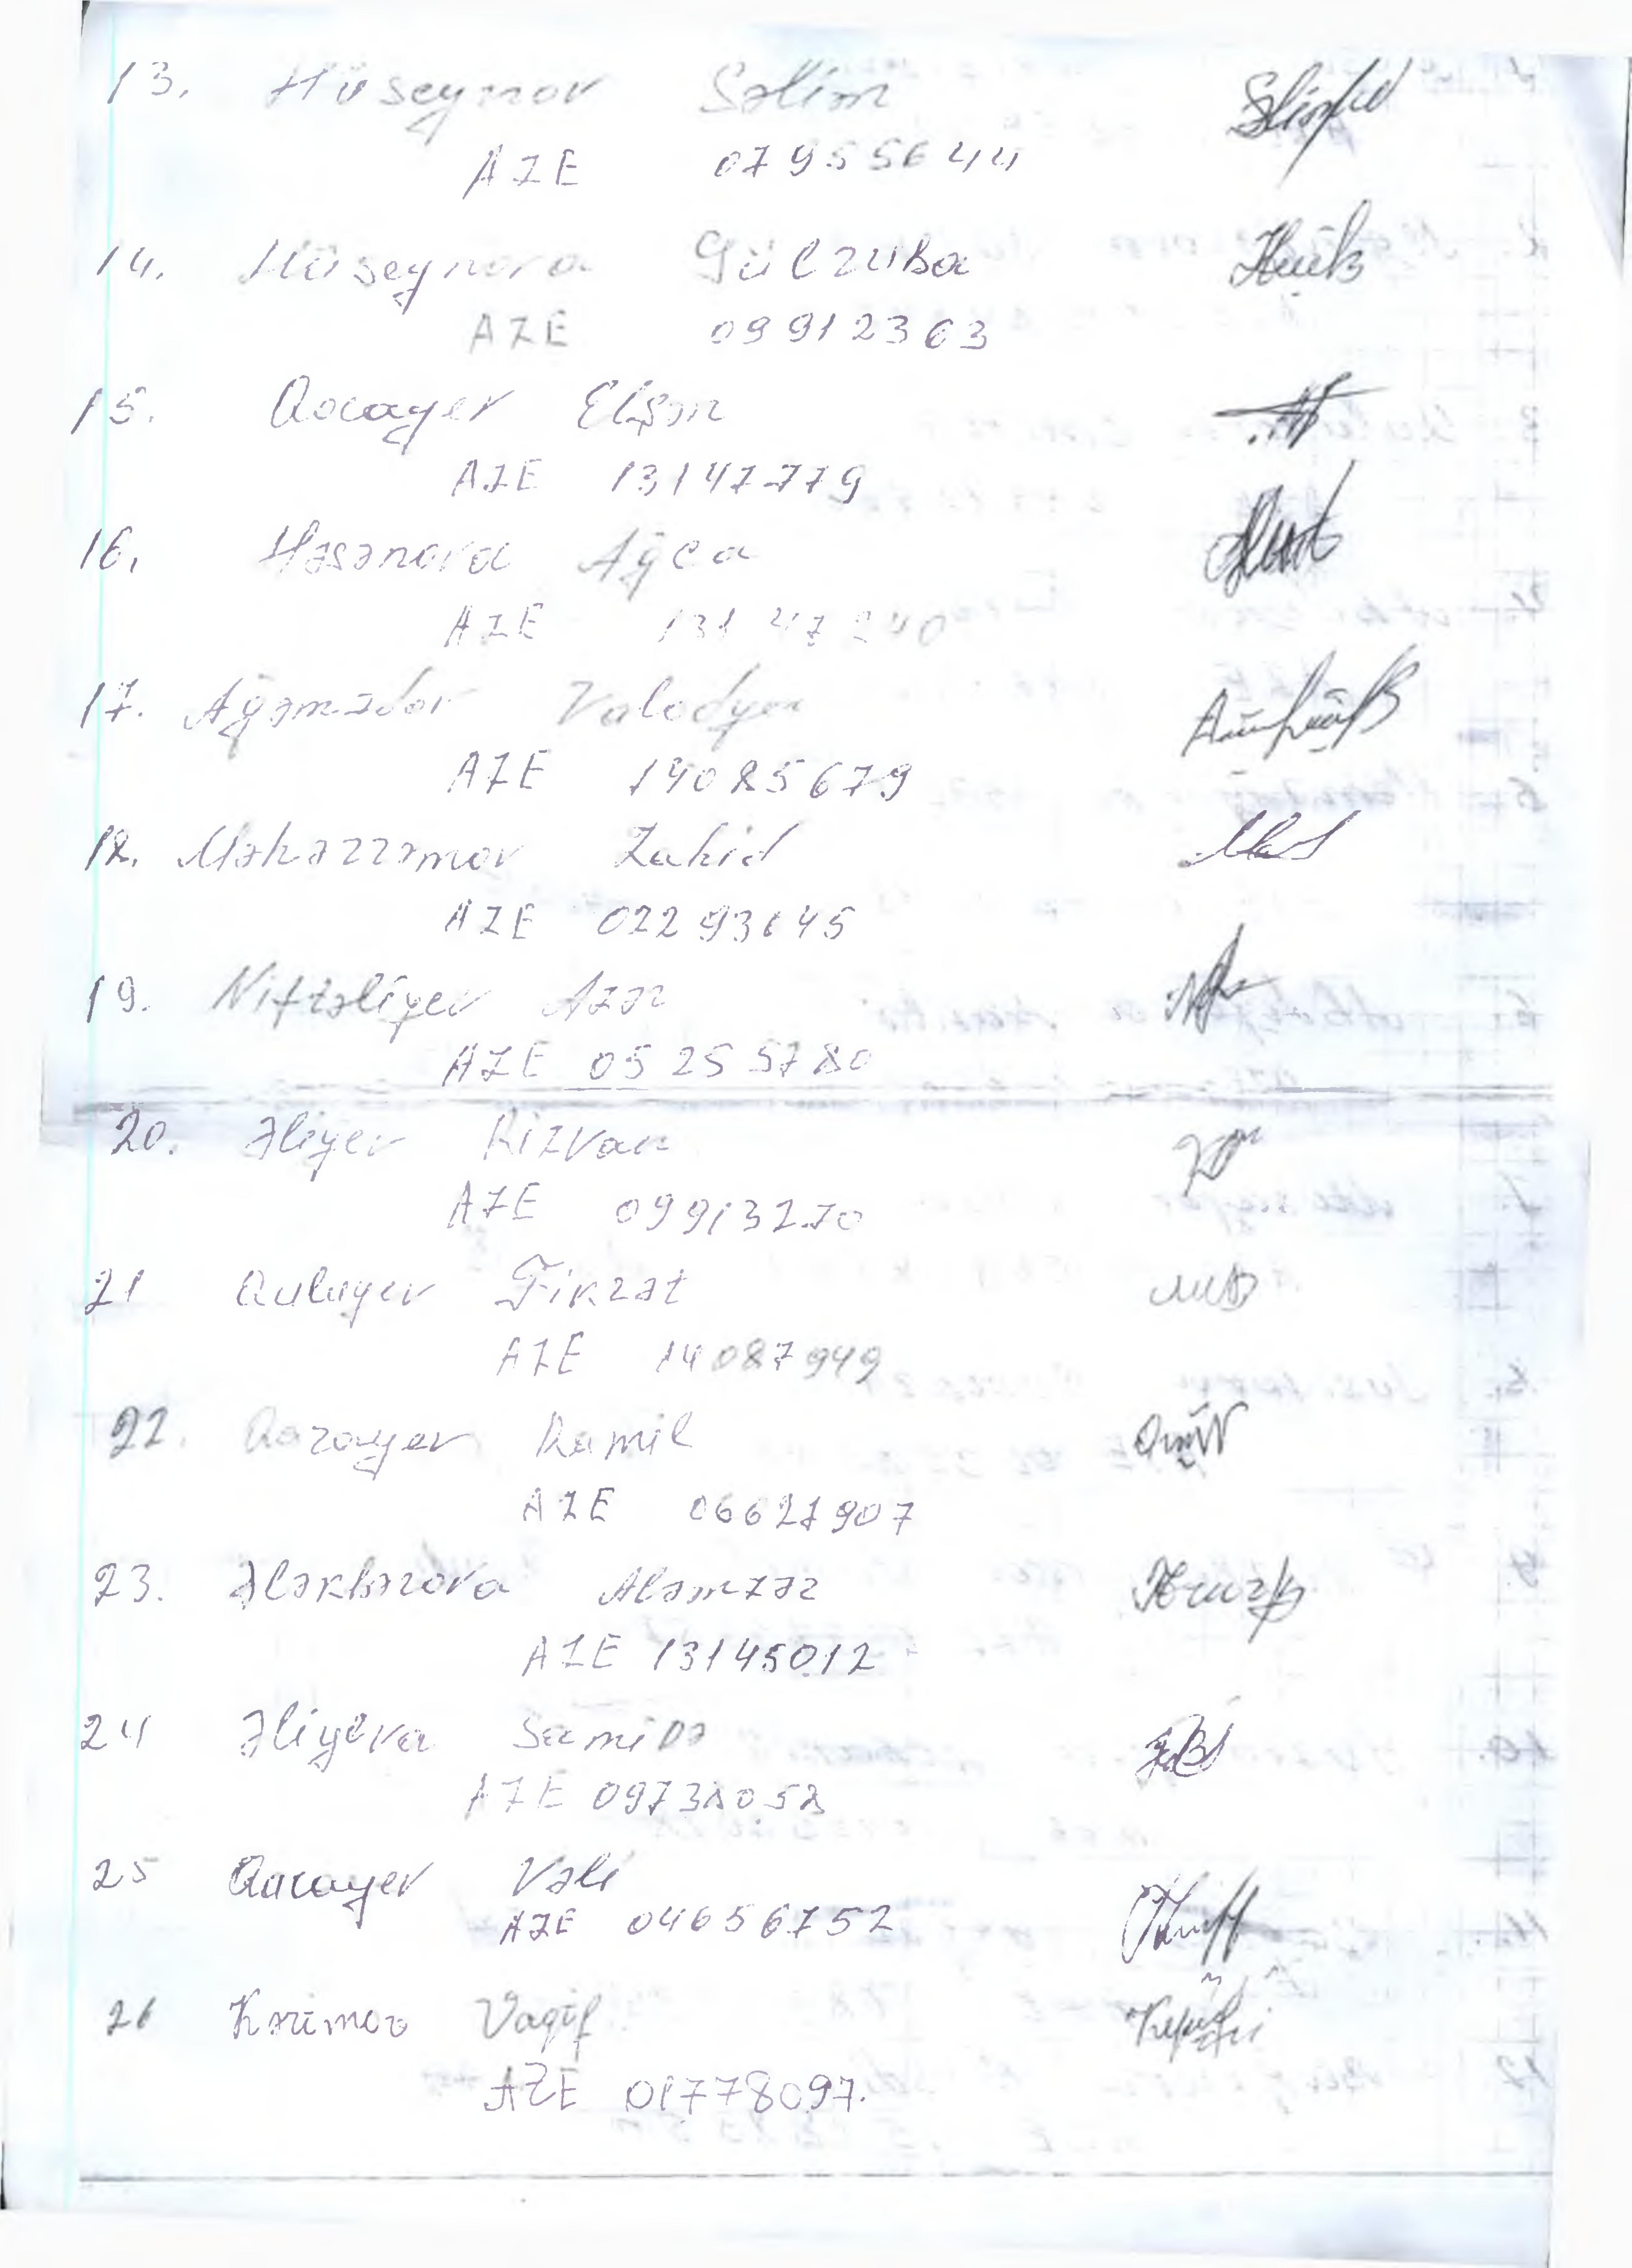 13. Hüseynov Səlim
AZE 07955644
14. Hüseynova Gülzuba
AZE 09912363
15. Qocayev Elşən
AZE 13147779
16. Həsənova Ağca
AZE 13147240
17. Ağəmədov Valodya
AZE 14085679
18. Məhərrəmov Zahid
AZE 02293645
19. Niftəliyev Azər
AZE 05255780
20. Əliyev Rizvan
AZE 09913270
21 Quluyev Fikrət
AZE 14087949
22. Qarayev Ramil
AZE 06627907
23. Ələkbərova Aləmzər
AZE 13145012
24 Əliyeva Samirə
AZE 09738058
25 Qocayev Vəli
AZE 04656752
26 Kərimov Vaqif
AZE 01778097.